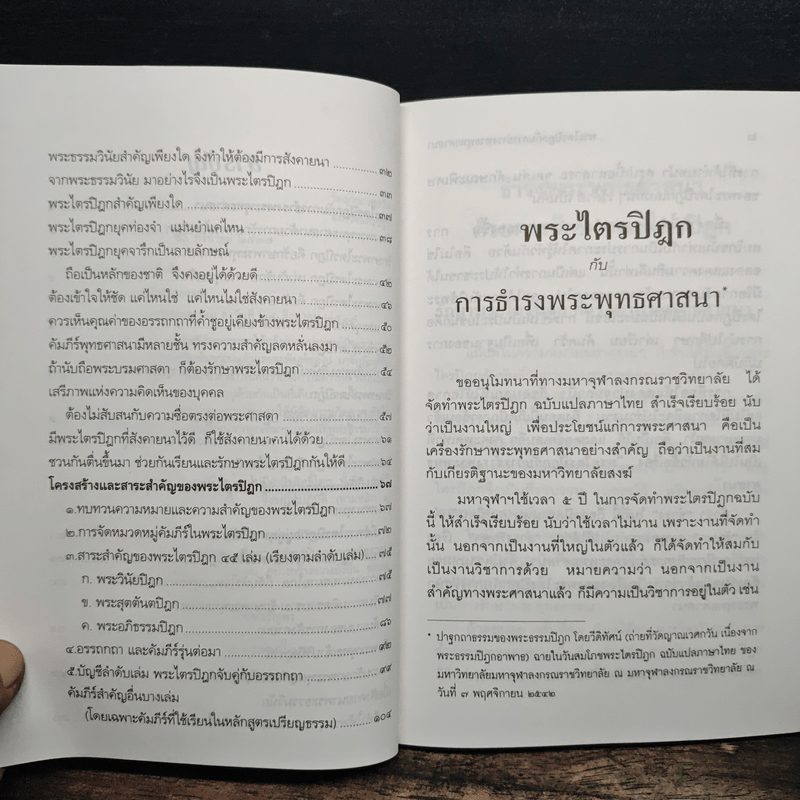 พระธรรมวินัยสำคัญเพียงใด จึงทำให้ต้องมีการสังคายนา ............ ๓๒
จากพระธรรมวินัย มาอย่างไรจึงเป็นพระไตรปิฎก ............ ๓๓
พระไตรปิฎกสำคัญเพียงใด ............ ๓๗
พระไตรปิฎกยุคท่องจำ แม่นยำแค่ไหน ............ ๓๘
พระไตรปิฎกยุคจารึกเป็นลายลักษณ์
ถือเป็นหลักของชาติ จึงคงอยู่ได้ด้วยดี ............ ๔๒
ต้องเข้าใจให้ชัด แค่ไหนใช่ แค่ไหนไม่ใช่สังคายนา ............ ๔๖
ควรเห็นคุณค่าของอรรถกถาที่ค้ำชูอยู่เคียงข้างพระไตรปิฎก ............ ๕๐
คัมภีร์พุทธศาสนามีหลายชั้น ทรงความสำคัญลดหลั่นลงมา ............ ๕๒
ถ้านับถือพระบรมศาสดา ก็ต้องรักษาพระไตรปิฎก ............ ๕๔
เสรีภาพแห่งความคิดเห็นของบุคคล
ต้องไม่สับสนกับความซื่อตรงต่อพระศาสดา ............ ๕๗
มีพระไตรปิฎกที่สังคายนาไว้ดี ก็ใช้สังคายนาคนได้ด้วย ............ ๖๑
ชวนกันตื่นขึ้นมา ช่วยกันเรียนและรักษาพระไตรปิฎกกันให้ดี ............ ๖๔
โครงสร้างและสาระสำคัญของพระไตรปิฎก ............ ๖๗
๑.ทบทวนความหมายและความสำคัญของพระไตรปิฎก ............ ๖๗
๒.การจัดหมวดหมู่คัมภีร์ในพระไตรปิฎก ............ ๗๒
๓.สาระสำคัญของพระไตรปิฎก ๔๕ เล่ม (เรียงตามลำดับเล่ม) ............ ๗๕
ก. พระวินัยปิฎก ............ ๗๕
ข. พระสุตตันตปิฎก ............ ๗๗
ค. พระอภิธรรมปิฎก ............ ๘๖
๔.อรรถกถา และคัมภีร์รุ่นต่อมา ............ ๙๒
๕.บัญชีลำดับเล่ม พระไตรปิฎกจับคู่กับอรรถกถา ............ ๙๙
คัมภีร์สำคัญอื่นบางเล่ม
(โดยเฉพาะคัมภีร์ที่ใช้เรียนในหลักสูตรเปรียญธรรม) ............ ๑๐๔
พระไตรปิฎก
กับ
การธำรงพระพุทธศาสนา*
ขออนุโมทนาที่ทางมหาจุฬาลงกรณราชวิทยาลัย ได้
จัดทำพระไตรปิฎก ฉบับแปลภาษาไทย สำเร็จเรียบร้อย นับ
ว่าเป็นงานใหญ่ เพื่อประโยชน์แก่การพระศาสนา คือเป็น
เครื่องรักษาพระพุทธศาสนาอย่างสำคัญ ถือว่าเป็นงานที่สม
กับเกียรติฐานะของมหาวิทยาลัยสงฆ์
มหาจุฬาฯใช้เวลา ๕ ปี ในการจัดทำพระไตรปิฎกฉบับ
นี้ ให้สำเร็จเรียบร้อย นับว่าใช้เวลาไม่นาน เพราะงานที่จัดทำ
นั้น นอกจากเป็นงานที่ใหญ่ในตัวแล้ว ก็ได้จัดทำให้สมกับ
เป็นงานวิชาการด้วย หมายความว่า นอกจากเป็นงาน
สำคัญทางพระศาสนาแล้ว ก็มีความเป็นวิชาการอยู่ในตัว เช่น
* ปาฐกถาธรรมของพระธรรมปิฎก โดยวีดิทัศน์ (ถ่ายที่วัดญาณเวศกวัน เนื่องจาก
พระธรรมปิฎกอาพาธ) ฉายในวันสมโภชพระไตรปิฎก ฉบับแปลภาษาไทย ของ
มหาวิทยาลัยมหาจุฬาลงกรณราชวิทยาลัย ณ มหาจุฬาลงกรณราชวิทยาลัย ณ
วันที่ ๗ พฤศจิกายน ๒๕๔๒